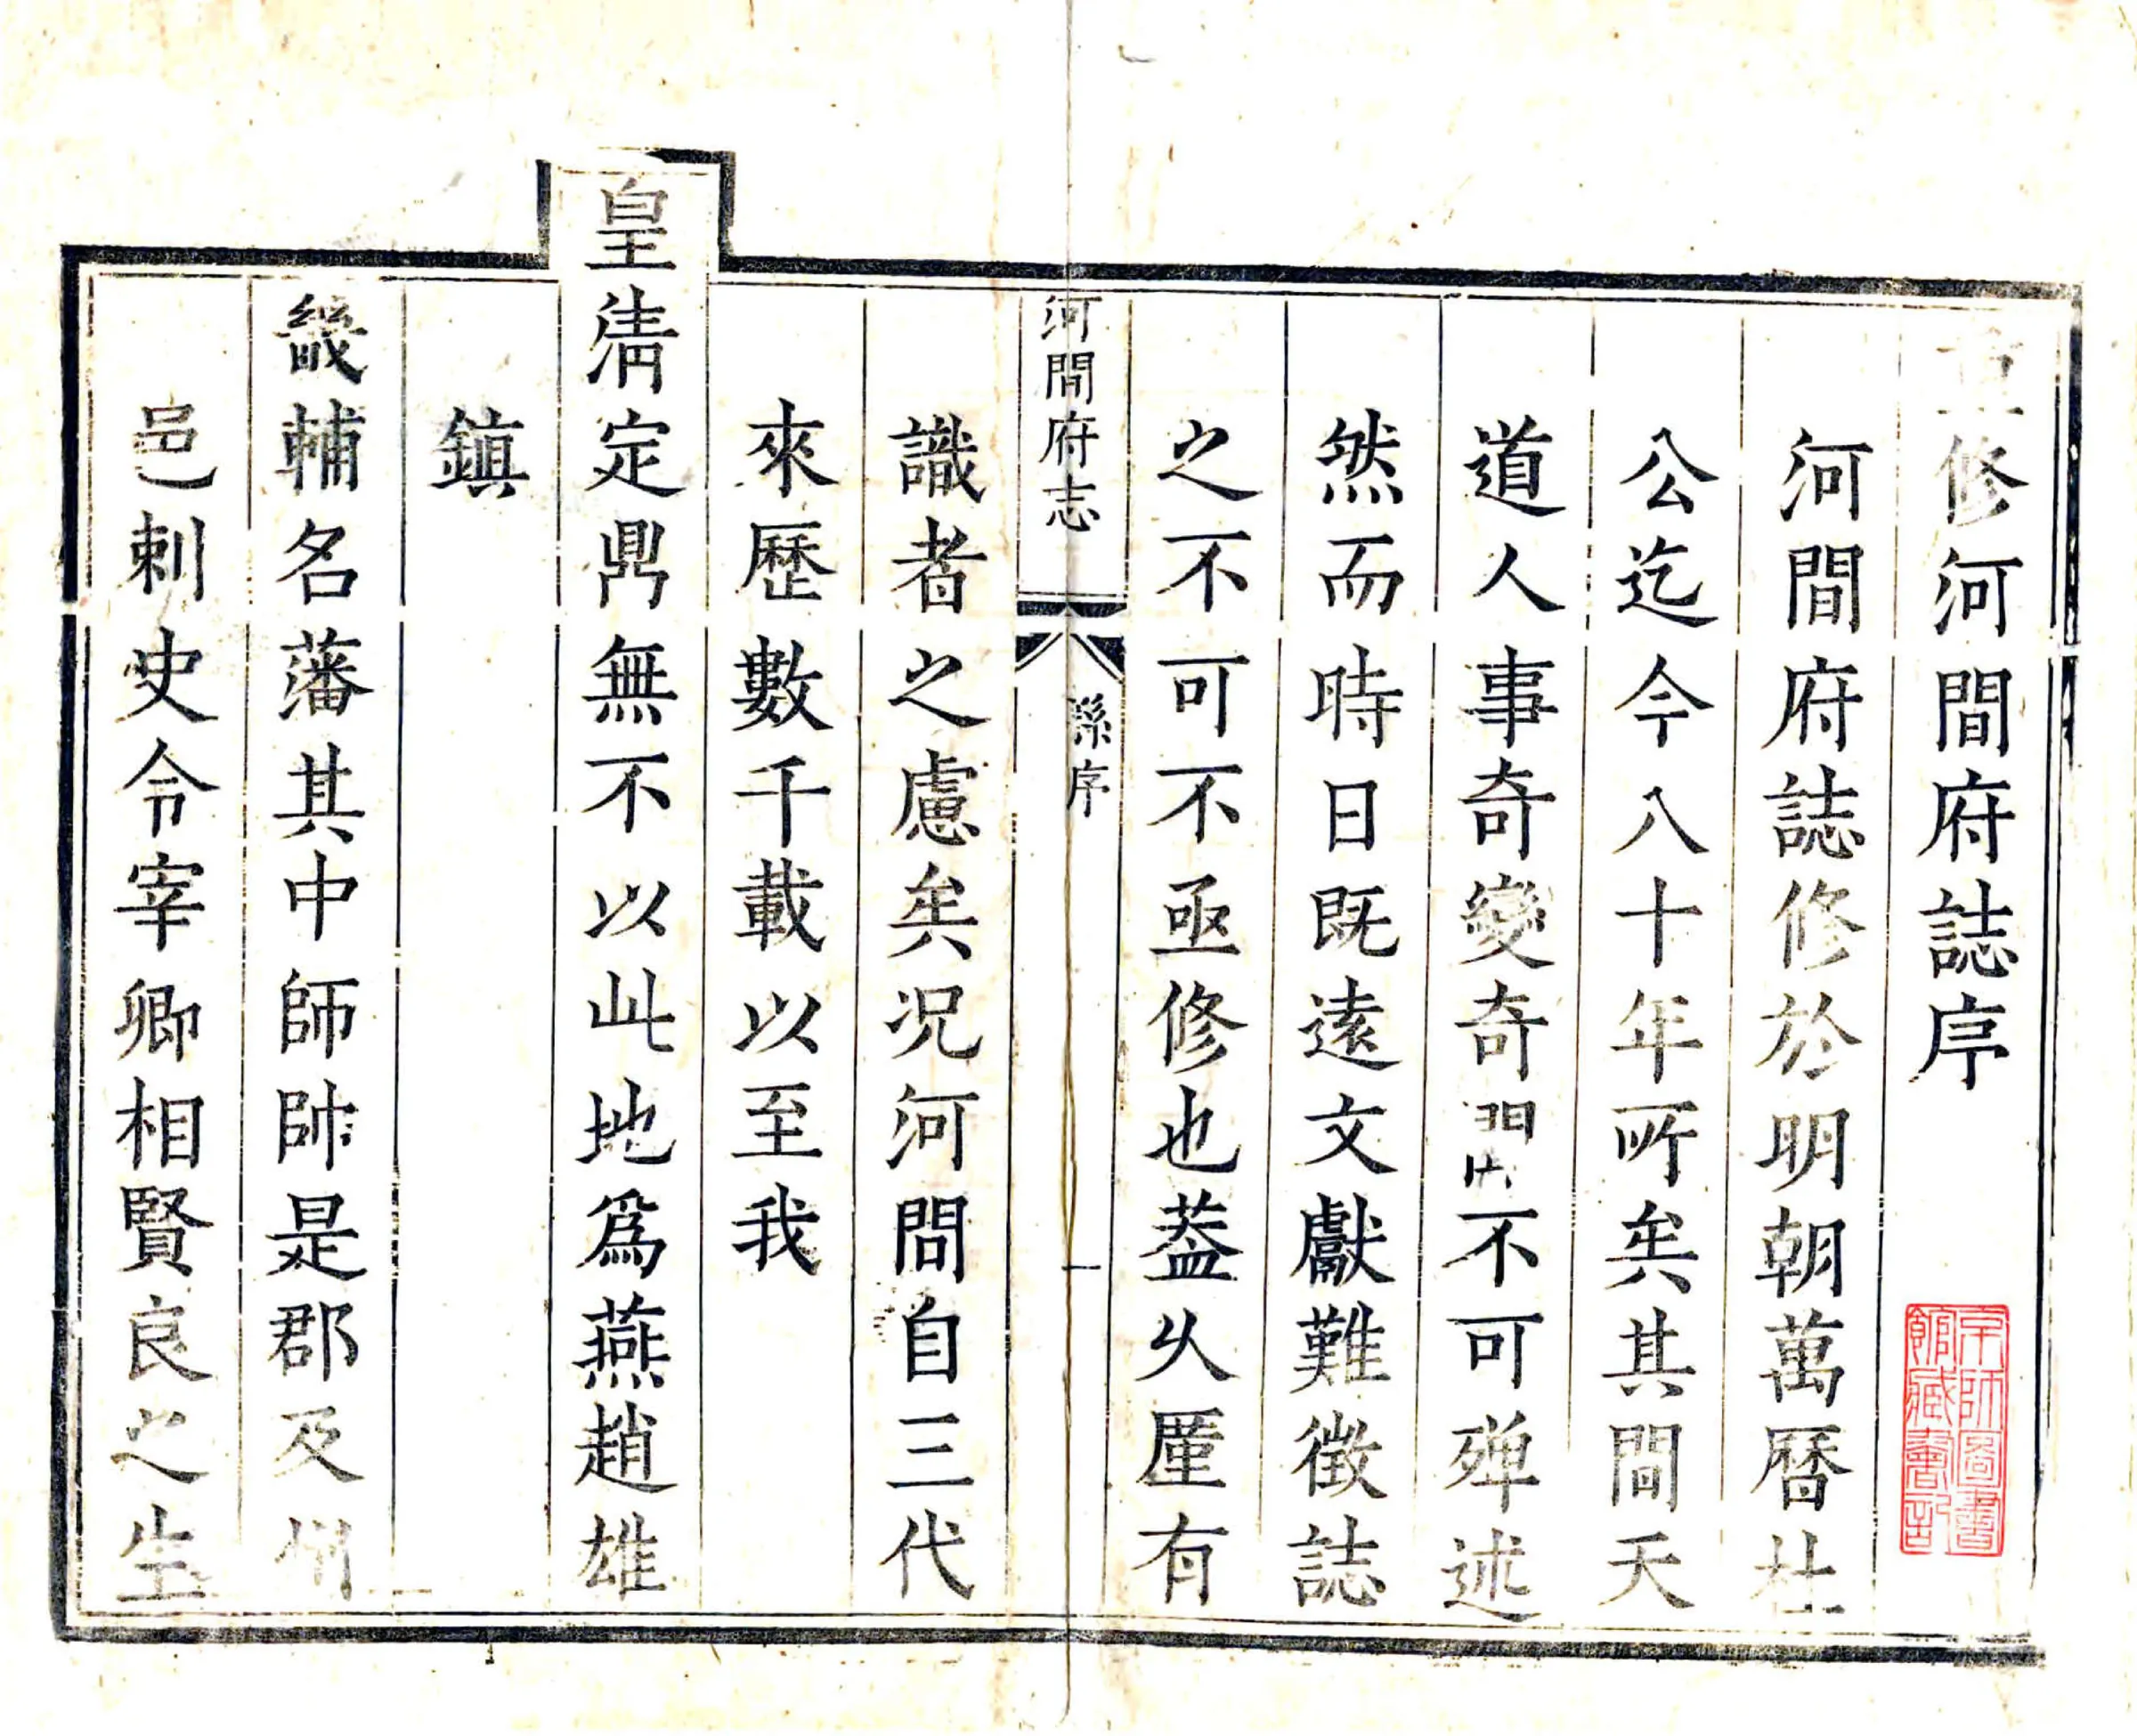 修河間府誌序
京師圖書
館藏書記
河間府誌修於明朝萬曆杜
公迄今八十年所矣其間天
道人事奇變奇不可殫述
然而時日既遠文獻難徵誌
之不可不亟修也葢乆厪有
河間府志 孫序 一
識者之慮矣况河問自三代
來歷數千載以至我
皇清定鼎無不以此地爲燕趙雄
鎮
畿輔名藩其中師帥是郡及州
邑刺史令宰卿相賢良之生